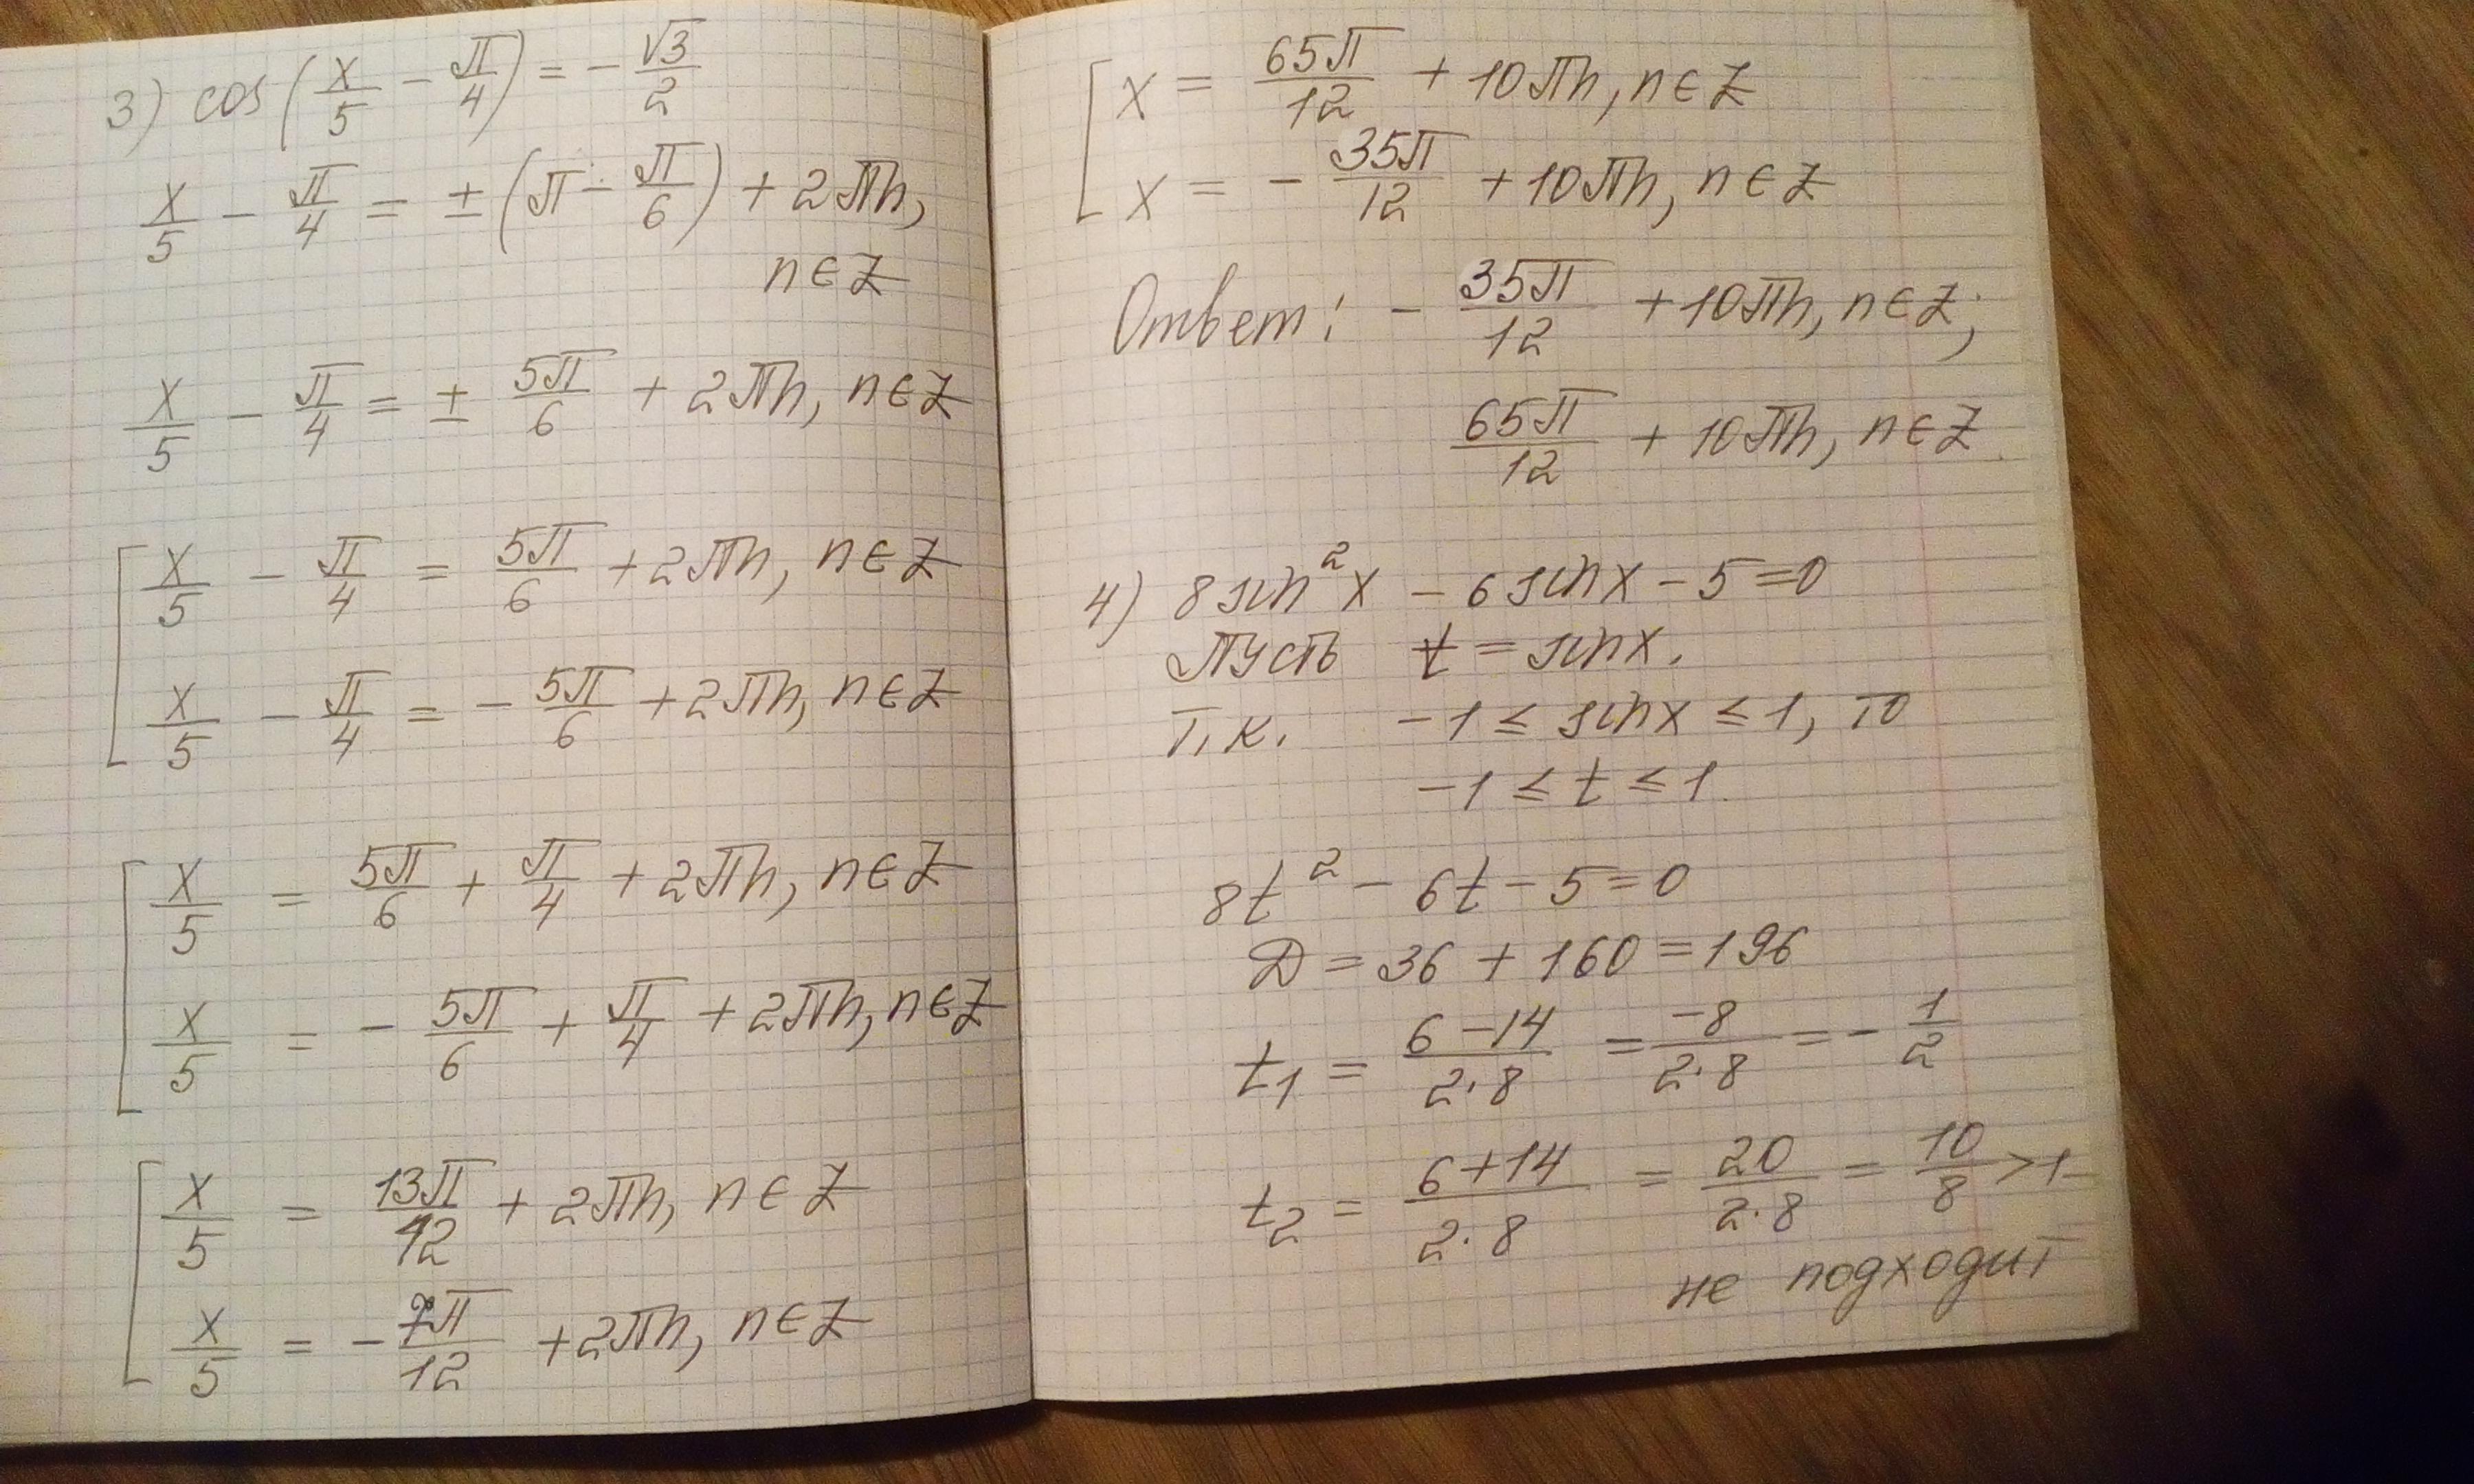 3) cos(x/5 − π/4) = −√3/2
x/5 − π/4 = ±(π − π/6) + 2πn,
n ∈ Z
x/5 − π/4 = ± 5π/6 + 2πn, n ∈ Z
[ x/5 − π/4 = 5π/6 + 2πn, n ∈ Z
x/5 − π/4 = − 5π/6 + 2πn, n ∈ Z
[ x/5 = 5π/6 + π/4 + 2πn, n ∈ Z
x/5 = − 5π/6 + π/4 + 2πn, n ∈ Z
[ x/5 = 13π/12 + 2πn, n ∈ Z
x/5 = − 7π/12 + 2πn, n ∈ Z
[ x = 65π/12 + 10πn, n ∈ Z
x = − 35π/12 + 10πn, n ∈ Z
Ответ: − 35π/12 + 10πn, n ∈ Z;
65π/12 + 10πn, n ∈ Z
4) 8 sin²x − 6 sinx − 5 = 0
Пусть t = sinx.
Т.к. −1 ≤ sinx ≤ 1, то
−1 ≤ t ≤ 1.
8t² − 6t − 5 = 0
D = 36 + 160 = 196
t₁ = (6 − 14)/(2·8) = −8/(2·8) = − 1/2
t₂ = (6 + 14)/(2·8) = 20/(2·8) = 10/8 > 1
не подходит